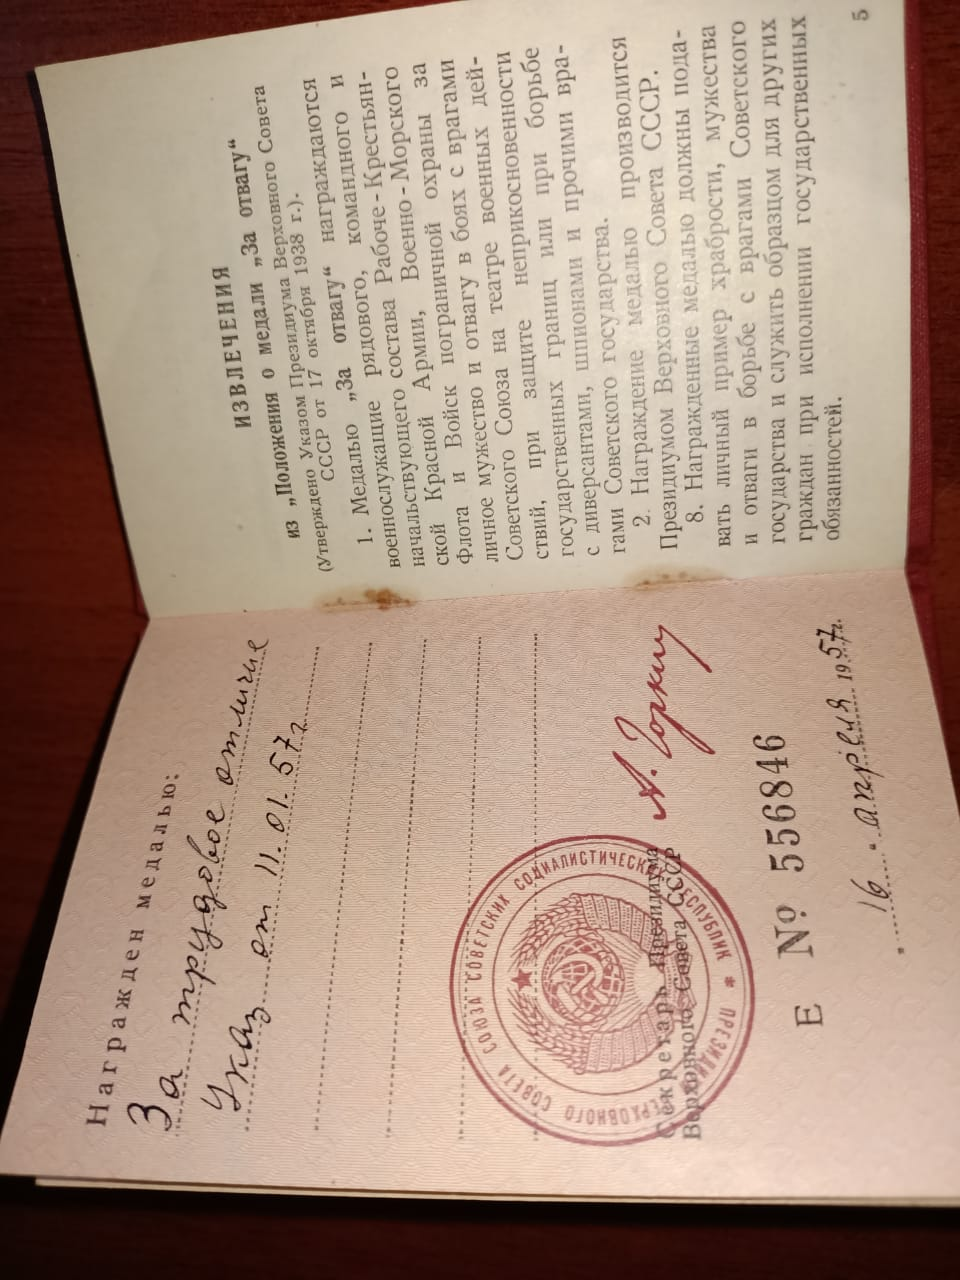 Награжден медалью:
За трудовое отличие
Указ от 11.01.57г
СОЮЗА СОВЕТСКИХ СОЦИАЛИСТИЧЕСКИХ РЕСПУБЛИК * ПРЕЗИДИУМ ВЕРХОВНОГО СОВЕТА
Секретарь Президиума
Верховного Совета СССР
А. Горкин
Е № 556846
"16" апреля 1957г.
ИЗВЛЕЧЕНИЯ
из „Положения о медали „За отвагу“
(Утверждено Указом Президиума Верховного Совета
СССР от 17 октября 1938 г.).
1. Медалью „За отвагу“ награждаются
военнослужащие рядового, командного и
начальствующего состава Рабоче-Крестьян-
ской Красной Армии, Военно-Морского
Флота и Войск пограничной охраны за
личное мужество и отвагу в боях с врагами
Советского Союза на театре военных дей-
ствий, при защите неприкосновенности
государственных границ или при борьбе
с диверсантами, шпионами и прочими вра-
гами Советского государства.
2. Награждение медалью производится
Президиумом Верховного Совета СССР.
8. Награжденные медалью должны пода-
вать личный пример храбрости, мужества
и отваги в борьбе с врагами Советского
государства и служить образцом для других
граждан при исполнении государственных
обязанностей.
5